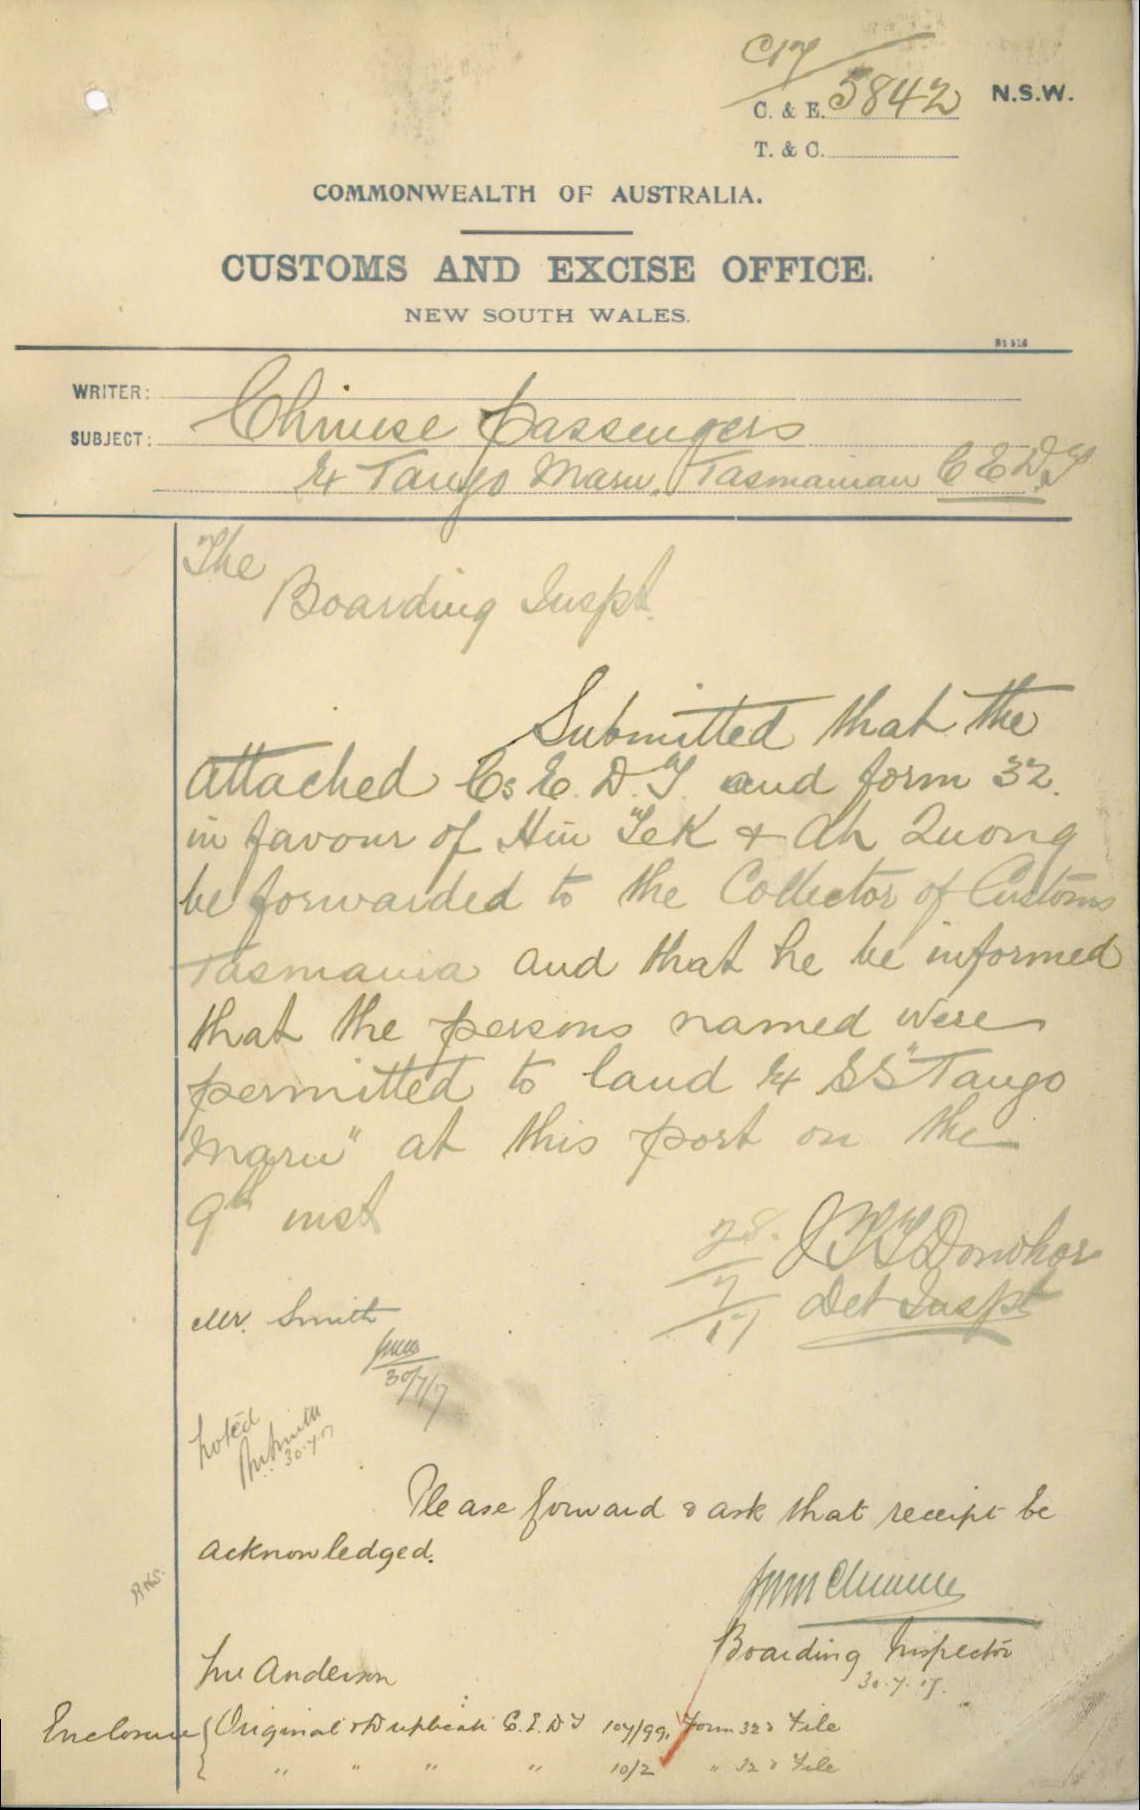 C17
C. & E. 5842 N.S.W.
T. & C.
COMMONWEALTH OF AUSTRALIA.
CUSTOMS AND EXCISE OFFICE.
NEW SOUTH WALES.
WRITER:
SUBJECT: Chinese passengers
Tango Maru. Tasmanian C E D T
The
Boarding Inspt.
Submitted that the
attached Cs. E. D. T. and form 32.
in favour of Hin Tek & Ah Quong
be forwarded to the Collector of Customs
Tasmania and that he be informed
that the persons named were
permitted to land SS "Tango
Maru" at this port on the
9th inst
28. Donohoe
7
17 Det Inspt
Mr. Smith
30/7/17
Noted
30.7.17
Please forward & ask that receipt be
acknowledged.
Boarding Inspector
30.7.17.
Mr Anderson
Enclosure { Original & Duplicate C.E.D.T 107/99. Form 32 & File
" " " " 10/2 " 32 & File